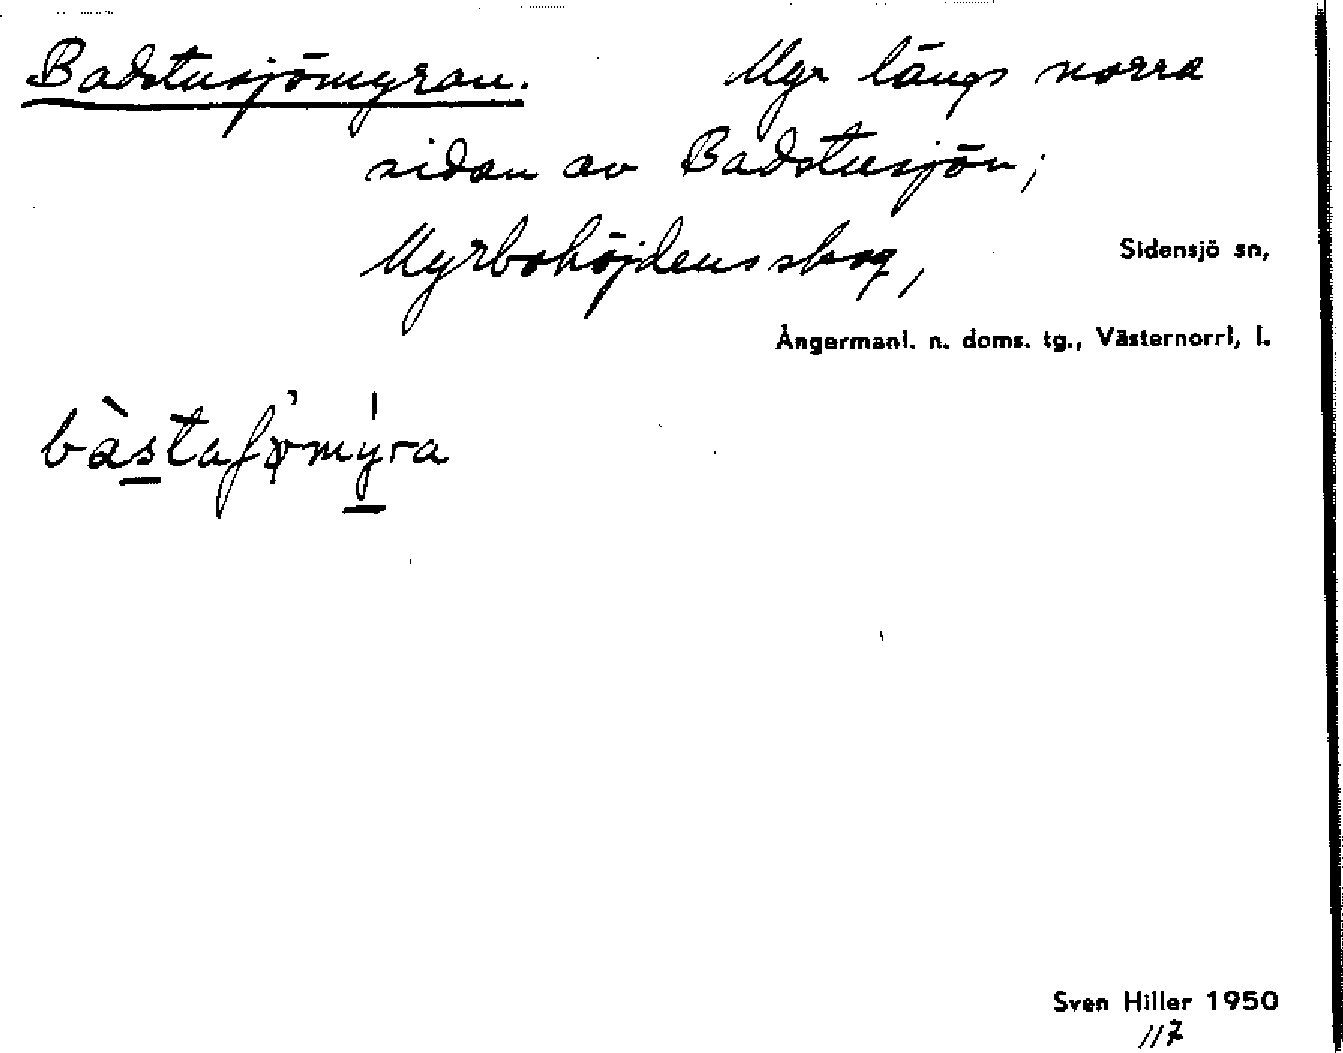 Badstusjömyran. Myr längs norra
sidan av Badstusjön;
Myrbohöjdens skog, Sidensjö sn,
Ångermanl. n. doms. tg., Västernorrl, l.
bàstaʃø̀mýra
Sven Hiller 1950
117